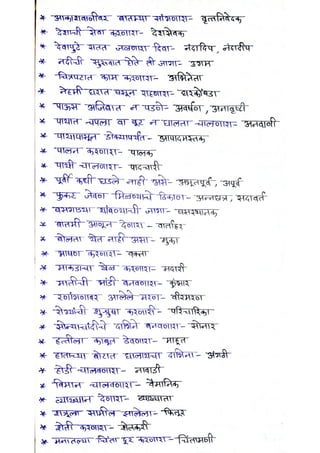 * आकाशवाणीवर बातम्या सांगणारा- वृत्तनिवेदक
* देशाची सेवा करणारा- देशसेवक
* देवापुढे सतत जळणारा दिवा- नंदादिप, नंदादीप
* नदीची सुरुवात होते ती जागा- उगम
* चित्रपटात काम करणारा- अभिनेता
* नेहमी घरात बसून राहणारा- घरकोंबडा
* पाऊस अजिबात न पडणे- अवर्षण, अनावृष्टी
* पायात चपला वा बूट न घालता चालणारा- अनवाणी
* पायापासून डोक्यापर्यंत- आपादमस्तक
* पालन करणारा- पालक
* पायी चालणारा- पादचारी
* पूर्वी कधी घडले नाही असे- अभूतपूर्व, अपूर्व
* फुकट जेवण मिळण्याचे ठिकाण- अन्नछत्र, सदावर्त
* बसगाड्या थांबण्याची जागा- बसस्थानक
* बातमी आणून देणारा- वार्ताहर
* बोलता येत नाही असा- मुका
* भाषण करणारा- वक्ता
* माकडाचा खेळ करणारा- मदारी
* मातीची भांडी बनवणारा- कुंभार
* रणांगणावर आलेले मरण- वीरमरण
* रोग्यांची शुश्रुषा करणारी- परिचारिका
* सोन्याचांदीचे दागिने बनवणारा- सोनार
* हत्तीला काबूत ठेवणारा- माहूत
* हाताच्या बोटात घालायचा दागिना- अंगठी
* होडी चालवणारा- नावाडी
* विमान चालवणारा- वैमानिक
* व्याख्यान देणारा- व्याख्याता
* शत्रूला सामील झालेला- फितूर
* शेती करणारा- शेतकरी
* मनातल्या चिंता दूर करणारा- चिंतामणी